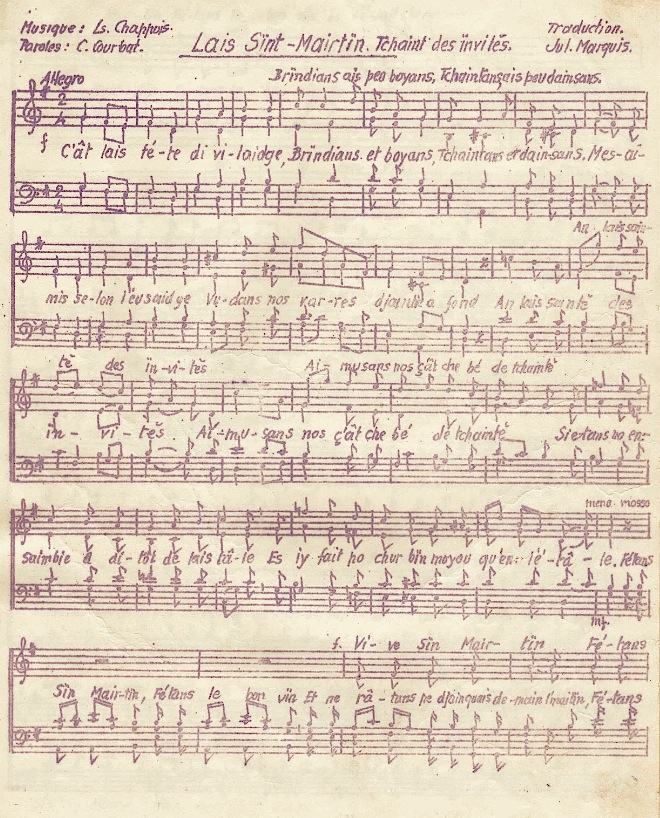 Musique : Ls. Chappuis.
Paroles : C. Courbat.
Lais Sïnt-Mairtïn. Tchaint des ïnvités.
Traduction.
Jul. Marquis.
Allegro
Brïndians ais peu boyans, Tchaintans ais peu dainsans.
f C'ât lais fé-te di vi-laidge, Brïndians et boyans, Tchaintans et dain-sans. Mes-ai-
An lais sain-
mis se-lon l'éusaidge Vu-dans nos var-res djunqu'a fond An lais saintè des
tè des ïn-vi-tès Ai-musans nos ç'ât che bé de tchaintè
in-vi-tès Ai-mu-sans nos ç'ât che bé de tchaintè Sie-tans no en-
meno mosso
saimbie è di-tot de lais tâ-le Es iy fait ho chur bin moyou qu'en lé-tâ-le. Fétans
mf.
f. Vi-ve Sïn Mair-tïn Fé-tans
Sïn Mair-tïn, Fétans le bon vïn Et ne râ-tans pe djuinquais de-main l'maitïn, Fé-tans